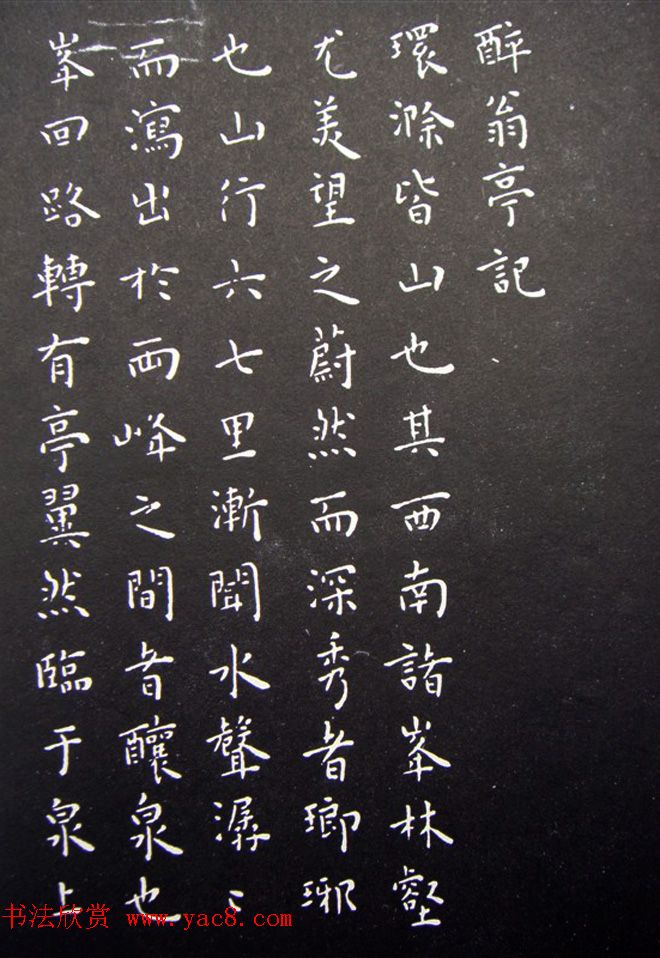 醉翁亭記
環滁皆山也其西南諸峯林壑
尤美望之蔚然而深秀者瑯琊
也山行六七里漸聞水聲潺〻
而瀉出於兩峰之間者釀泉也
峯回路轉有亭翼然臨于泉上
书法欣赏 www.yac8.com